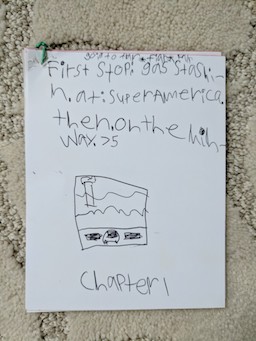 First stop: gas stashi-
n.at:superAmerica.
then.on the hih-
way.35
Chapter 1